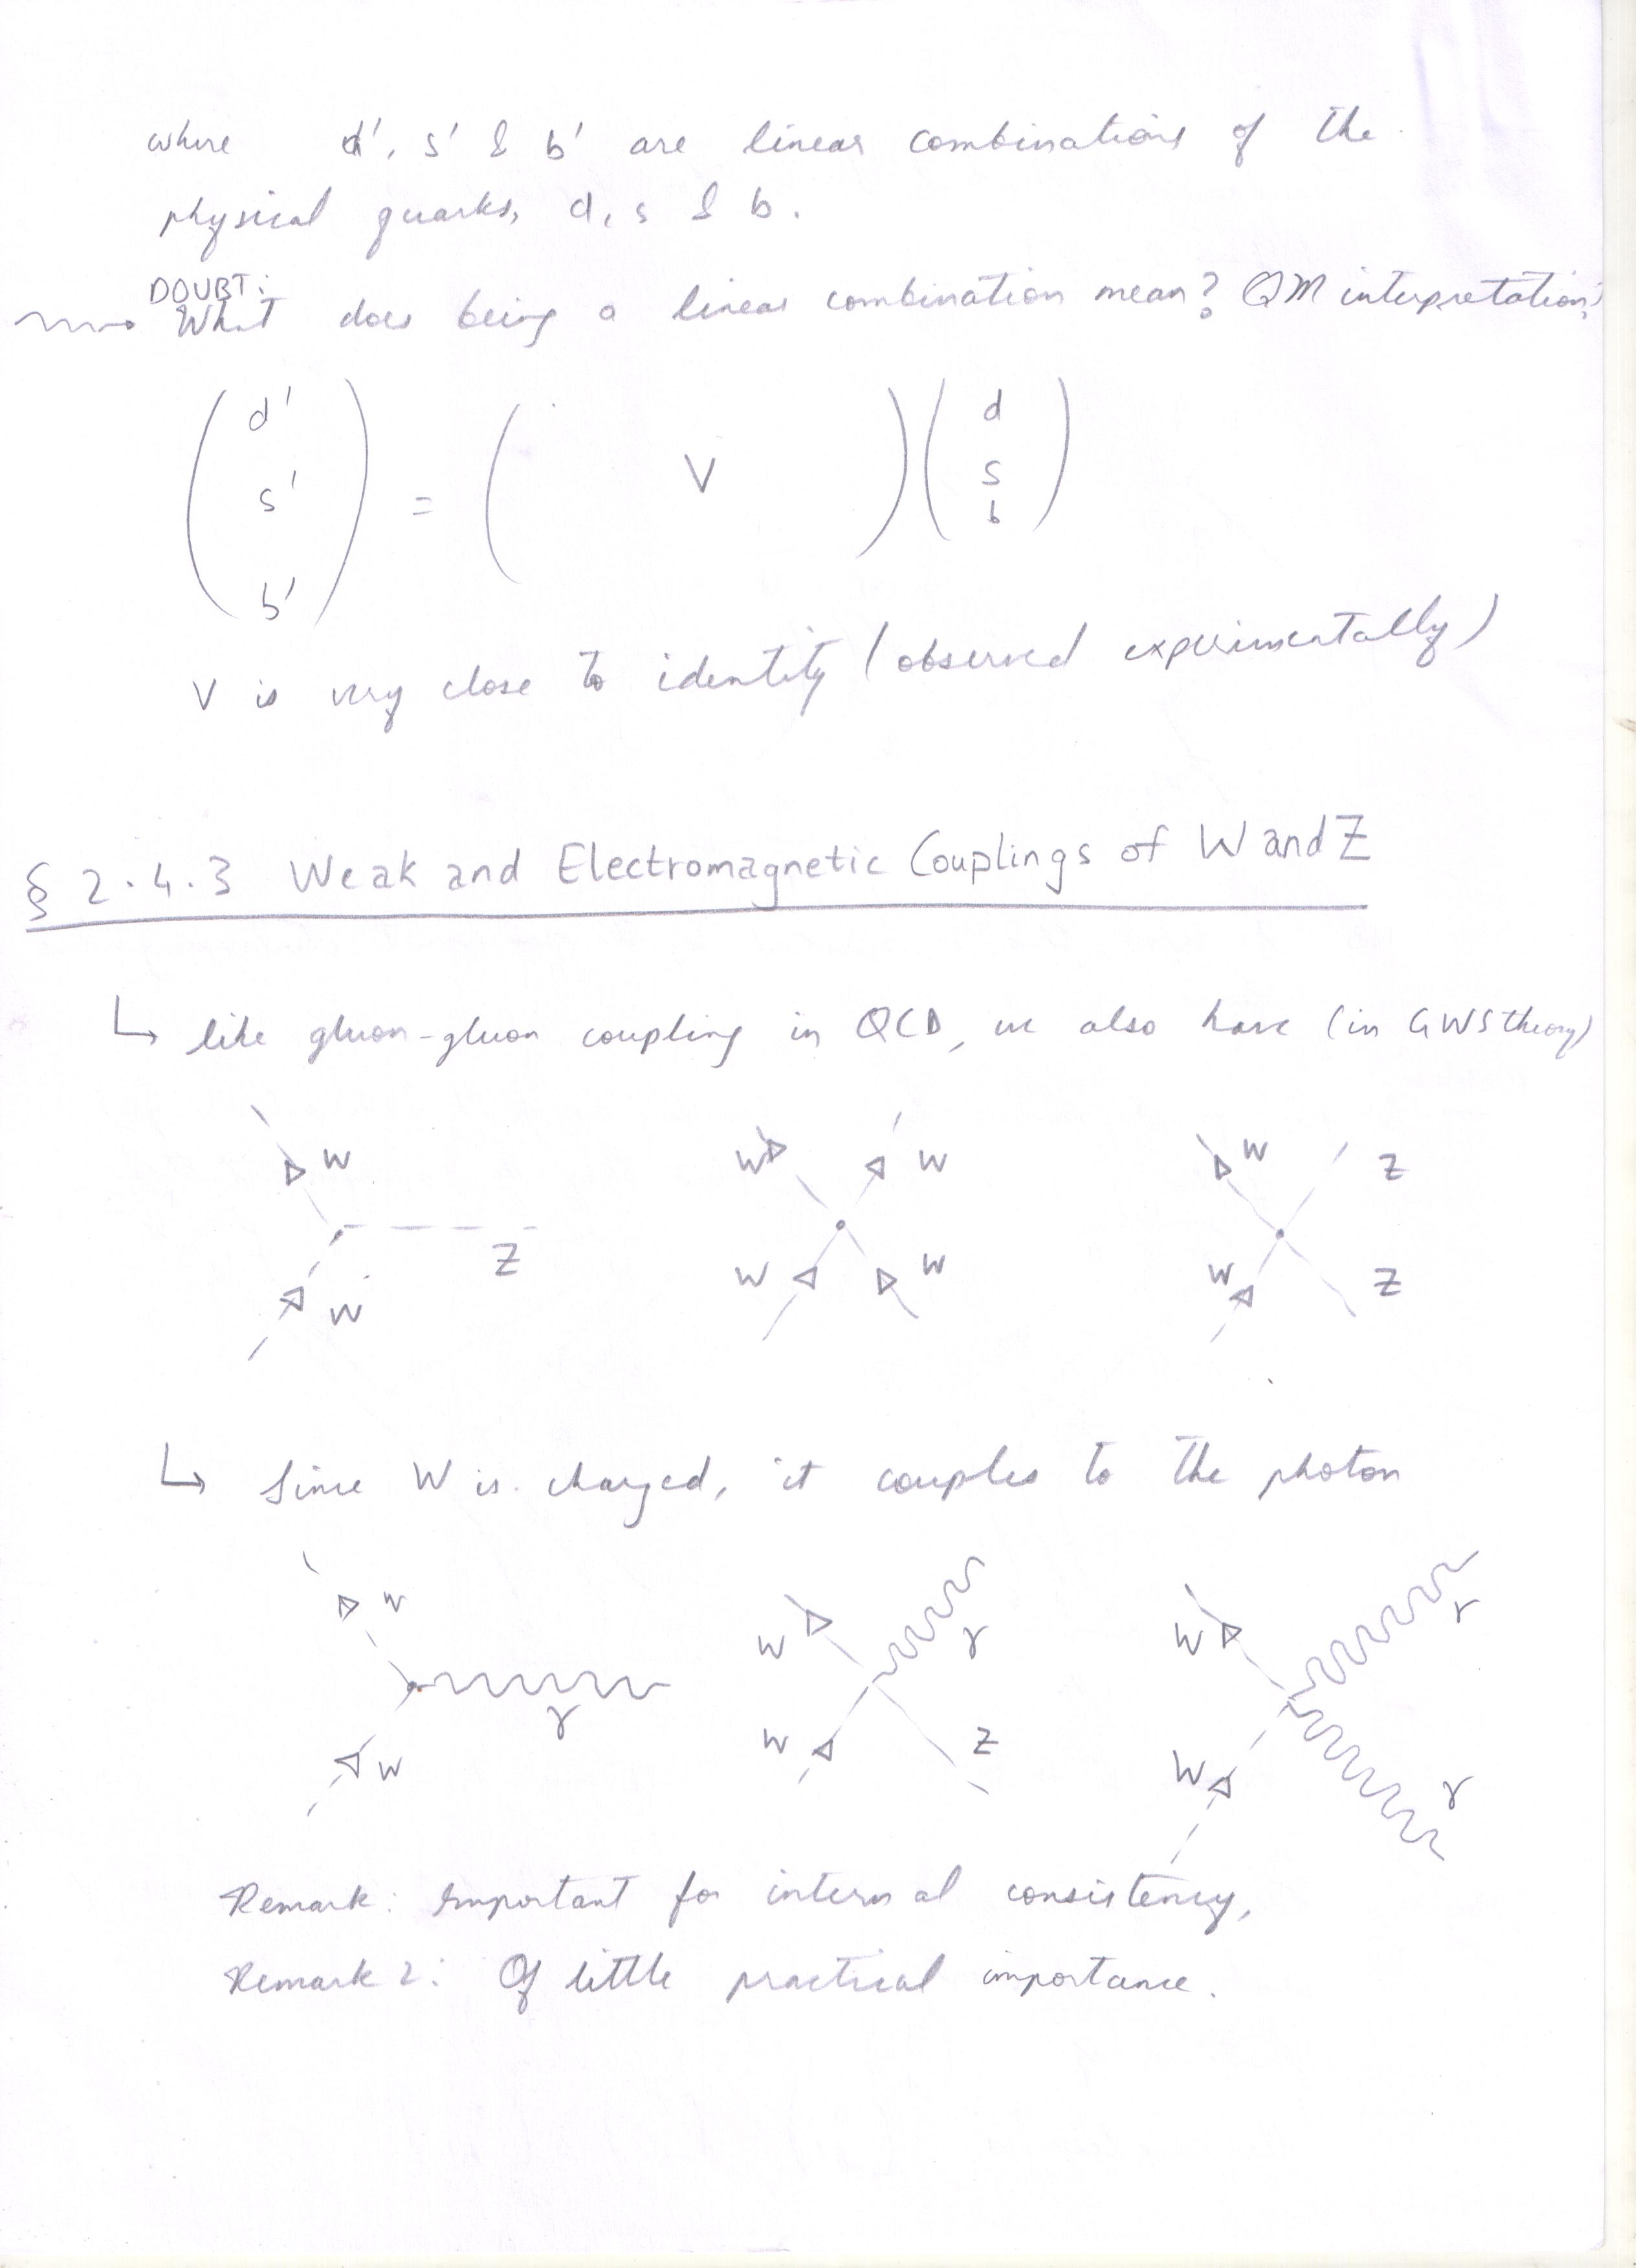 where d', s' & b' are linear combinations of the
physical quarks, d, s & b.
DOUBT:
What does being a linear combination mean? QM interpretation?
d'
s'
b'
=
V
d
s
b
V is very close to identity (observed experimentally)
§ 2.4.3 Weak and Electromagnetic Couplings of W and Z
↳ like gluon-gluon coupling in QCD, we also have (in GWS theory)
W
W
Z
W
W
W
W
W
W
Z
Z
↳ Since W is charged, it couples to the photon
W
W
γ
W
W
γ
Z
W
W
γ
γ
Remark: Important for internal consistency,
Remark 2: Of little practical importance.